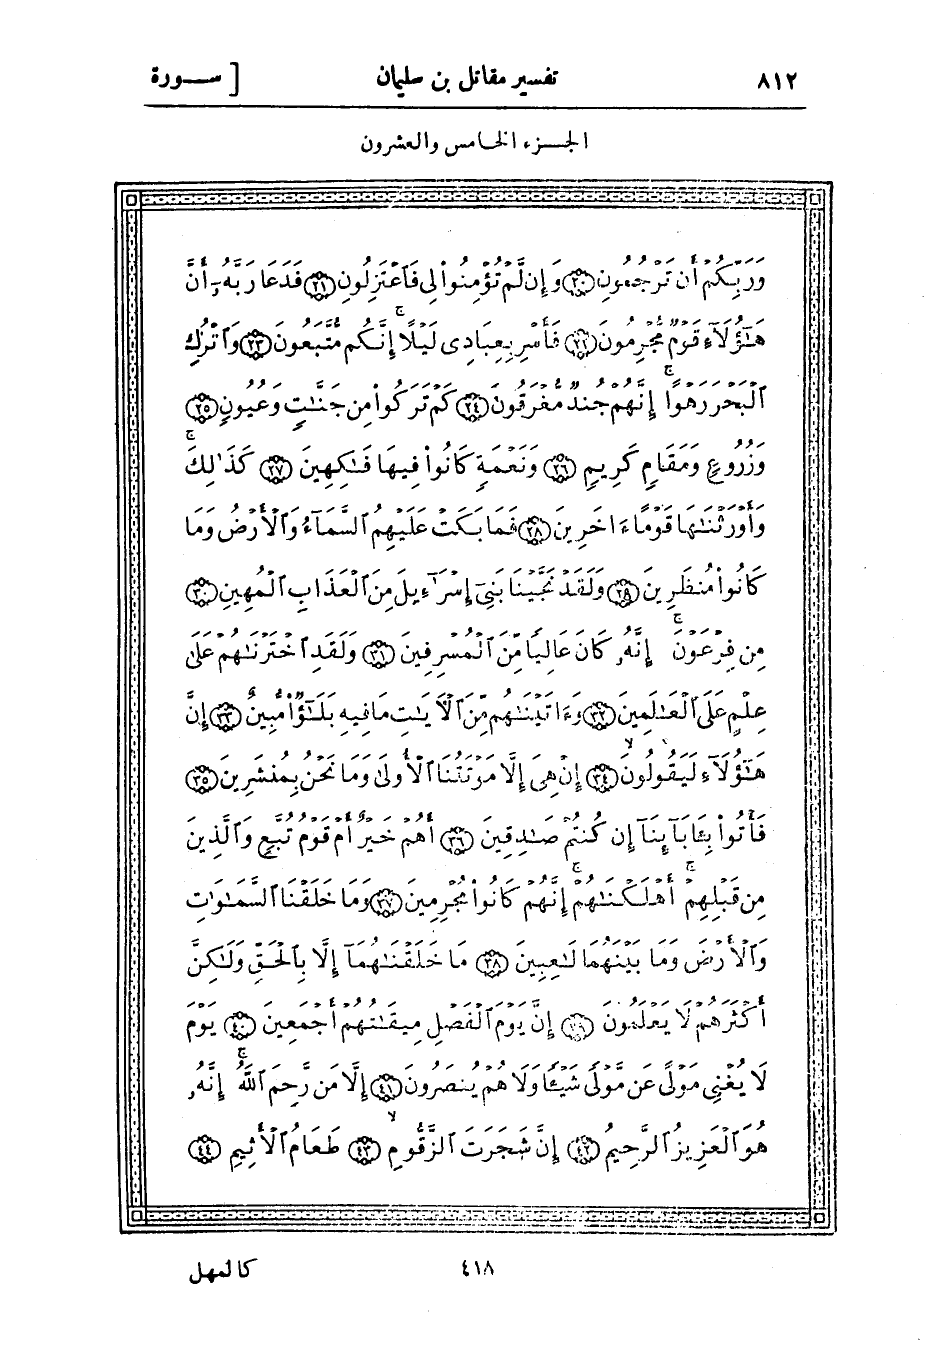 ٨١٢ تفسير مقاتل بن سليمان [ ســورة
الجـزء الخـامس والعشرون
وَرَبِّكُمْ أَن تَرْجُمُونِ ٢٠ وَإِن لَّمْ تُؤْمِنُوا۟ لِى فَٱعْتَزِلُونِ ٢١ فَدَعَا رَبَّهُۥٓ أَنَّ
هَٰٓؤُلَآءِ قَوْمٌ مُّجْرِمُونَ ٢٢ فَأَسْرِ بِعِبَادِى لَيْلًا ۚ إِنَّكُم مُّتَّبَعُونَ ٢٣ وَٱتْرُكِ
ٱلْبَحْرَ رَهْوًا ۚ إِنَّهُمْ جُندٌ مُّغْرَقُونَ ٢٤ كَمْ تَرَكُوا۟ مِن جَنَّٰتٍ وَعُيُونٍ ٢٥
وَزُرُوعٍ وَمَقَامٍ كَرِيمٍ ٢٦ وَنَعْمَةٍ كَانُوا۟ فِيهَا فَٰكِهِينَ ٢٧ كَذَٰلِكَ ۚ
وَأَوْرَثْنَٰهَا قَوْمًا ءَاخَرِينَ ٢٨ فَمَا بَكَتْ عَلَيْهِمُ ٱلسَّمَآءُ وَٱلْأَرْضُ وَمَا
كَانُوا۟ مُنظَرِينَ ٢٩ وَلَقَدْ نَجَّيْنَا بَنِىٓ إِسْرَٰٓءِيلَ مِنَ ٱلْعَذَابِ ٱلْمُهِينِ ٣٠
مِن فِرْعَوْنَ ۚ إِنَّهُۥ كَانَ عَالِيًا مِّنَ ٱلْمُسْرِفِينَ ٣١ وَلَقَدِ ٱخْتَرْنَٰهُمْ عَلَىٰ
عِلْمٍ عَلَى ٱلْعَٰلَمِينَ ٣٢ وَءَاتَيْنَٰهُم مِّنَ ٱلْءَايَٰتِ مَا فِيهِ بَلَٰٓؤٌا۟ مُّبِينٌ ٣٣ إِنَّ
هَٰٓؤُلَآءِ لَيَقُولُونَ ٣٤ إِنْ هِىَ إِلَّا مَوْتَتُنَا ٱلْأُولَىٰ وَمَا نَحْنُ بِمُنشَرِينَ ٣٥
فَأْتُوا۟ بِـَٔابَآئِنَآ إِن كُنتُمْ صَٰدِقِينَ ٣٦ أَهُمْ خَيْرٌ أَمْ قَوْمُ تُبَّعٍ وَٱلَّذِينَ
مِن قَبْلِهِمْ ۚ أَهْلَكْنَٰهُمْ ۚ إِنَّهُمْ كَانُوا۟ مُجْرِمِينَ ٣٧ وَمَا خَلَقْنَا ٱلسَّمَٰوَٰتِ
وَٱلْأَرْضَ وَمَا بَيْنَهُمَا لَٰعِبِينَ ٣٨ مَا خَلَقْنَٰهُمَآ إِلَّا بِٱلْحَقِّ وَلَٰكِنَّ
أَكْثَرَهُمْ لَا يَعْلَمُونَ ٣٩ إِنَّ يَوْمَ ٱلْفَصْلِ مِيقَٰتُهُمْ أَجْمَعِينَ ٤٠ يَوْمَ
لَا يُغْنِى مَوْلًى عَن مَّوْلًى شَيْـًٔا وَلَا هُمْ يُنصَرُونَ ٤١ إِلَّا مَن رَّحِمَ ٱللَّهُ ۚ إِنَّهُۥ
هُوَ ٱلْعَزِيزُ ٱلرَّحِيمُ ٤٢ إِنَّ شَجَرَتَ ٱلزَّقُّومِ ٤٣ طَعَامُ ٱلْأَثِيمِ ٤٤
٤١٨ كالمهل